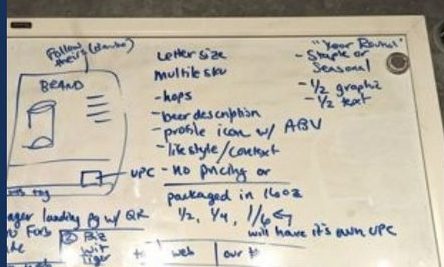 Follow
theirs
BRAND
UPC
tag
landing pg w/ QR
Letter size
Multiple sku
- hops
- beer description
- profile icon w/ ABV
- lifestyle/context
- no pricing or
packaged in 16oz
1/2, 1/4, 1/6
will have it's own UPC
web
our
"Year Round"
- Staple or
Seasonal
- 1/2 graphic
- 1/2 text